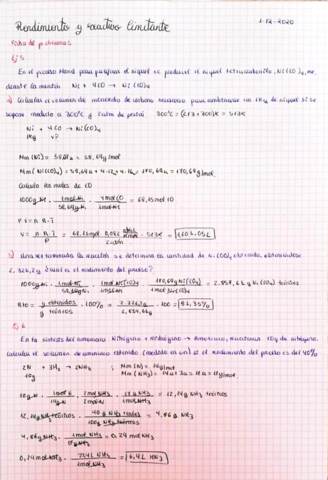 Rendimiento y reactivo limitante
1-12-2020
Ficha de problemas
Ej 5
En el proceso Mond para purificar el níquel se produce el níquel tetracarbonilo, Ni(CO)4,
mediante la reacción Ni + 4CO → Ni(CO)4
a) Calcular el volumen de monóxido de carbono necesario para combinarse con 1Kg de níquel si se
supone medido a 300ºC y 2 atm de presión 300ºC = (273+300)K = 573K
Ni + 4CO → Ni(CO)4
1Kg V?
Mm (Ni) = 58,69 g/mol
Mm (Ni(CO)4) = 170,69 g/mol
Calculo los moles de CO
1000g Ni · 1mol Ni / 58,69g Ni · 4mol CO / 1mol Ni = 68,15 mol CO
P·V = n·R·T
V = n·R·T / P = 68,15 mol · 0,082 · 573K / 2 atm
b) Una vez terminada la reacción se determina la cantidad de Ni(CO)4 obtenida, obteniéndose
2.326,2g ¿Cuál es el rendimiento del proceso?
1000g Ni · 1mol Ni / 58,69g Ni · 1mol Ni(CO)4 / 1mol Ni · 170,69g Ni(CO)4 / 1mol Ni(CO)4 = g Ni(CO)4 teóricos
Rto = g obtenidos / g teóricos · 100% = · 100 =
Ej 6
En la síntesis del amoniaco Nitrógeno + Hidrógeno → Amoniaco, reaccionan 10g de nitrógeno.
Calcular el volumen de amoniaco obtenido (medido en cn) si el rendimiento del proceso es del 40%
2N + 3H2 → 2NH3
10g
Mm (N) = 14g/mol
Mm (NH3) = 14+3 = 17g/mol
10g N · 1mol N / 14g N · NH3 · 17g NH3 / 1mol NH3 = 12,14g NH3 teóricos
12,14g NH3 teóricos · 40g NH3 / = 4,86g NH3
4,86g NH3 · 1mol NH3 / 17g NH3 = 0,29 mol NH3
0,29 mol NH3 · 22,4L NH3 / 1mol NH3 = 6,4L NH3